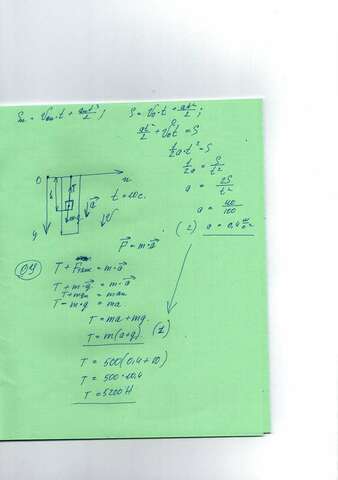 Sₘ = V₀ₘ·t + aₘt²/2 ;
S = V₀·t + at²/2 ;
at²/2 + V₀t = S
1/2 a·t² = S
1/2 a = S/t²
a = 2S/t²
a = 40/100
(2) a = 0,4 м/с²
0
x
t = 10c.
a
V
y
F = m·a
ОУ
T + Fтяж = m·a
T + m·g = m·a
T + mgₙ = maₙ
T − m·g = ma
T = ma + mg.
T = m(a+g). (1)
T = 500(0,4+10)
T = 500·10,4
T = 5200 Н